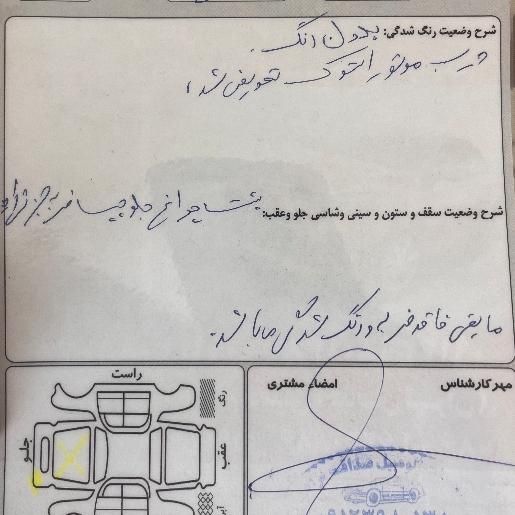 شرح وضعیت رنگ شدگی: بدون رنگ.
درب موتور استوک تعویض شد،
شرح وضعیت سقف و ستون و سینی وشاسی جلو وعقب: پشت چراغ جلو
مابقی فاقد ضربه و رنگ شدگی میباشد.
مهر کارشناس
امضاء مشتری
راست
رنگ
جلو
عقب